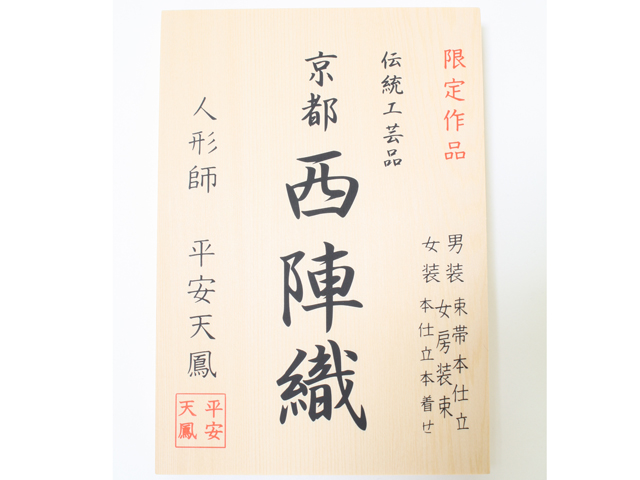 限定作品
男装 束帯本仕立
女房装束
女装 本仕立本着せ
伝統工芸品
京都
西陣織
人形師 平安天鳳
平安
天鳳